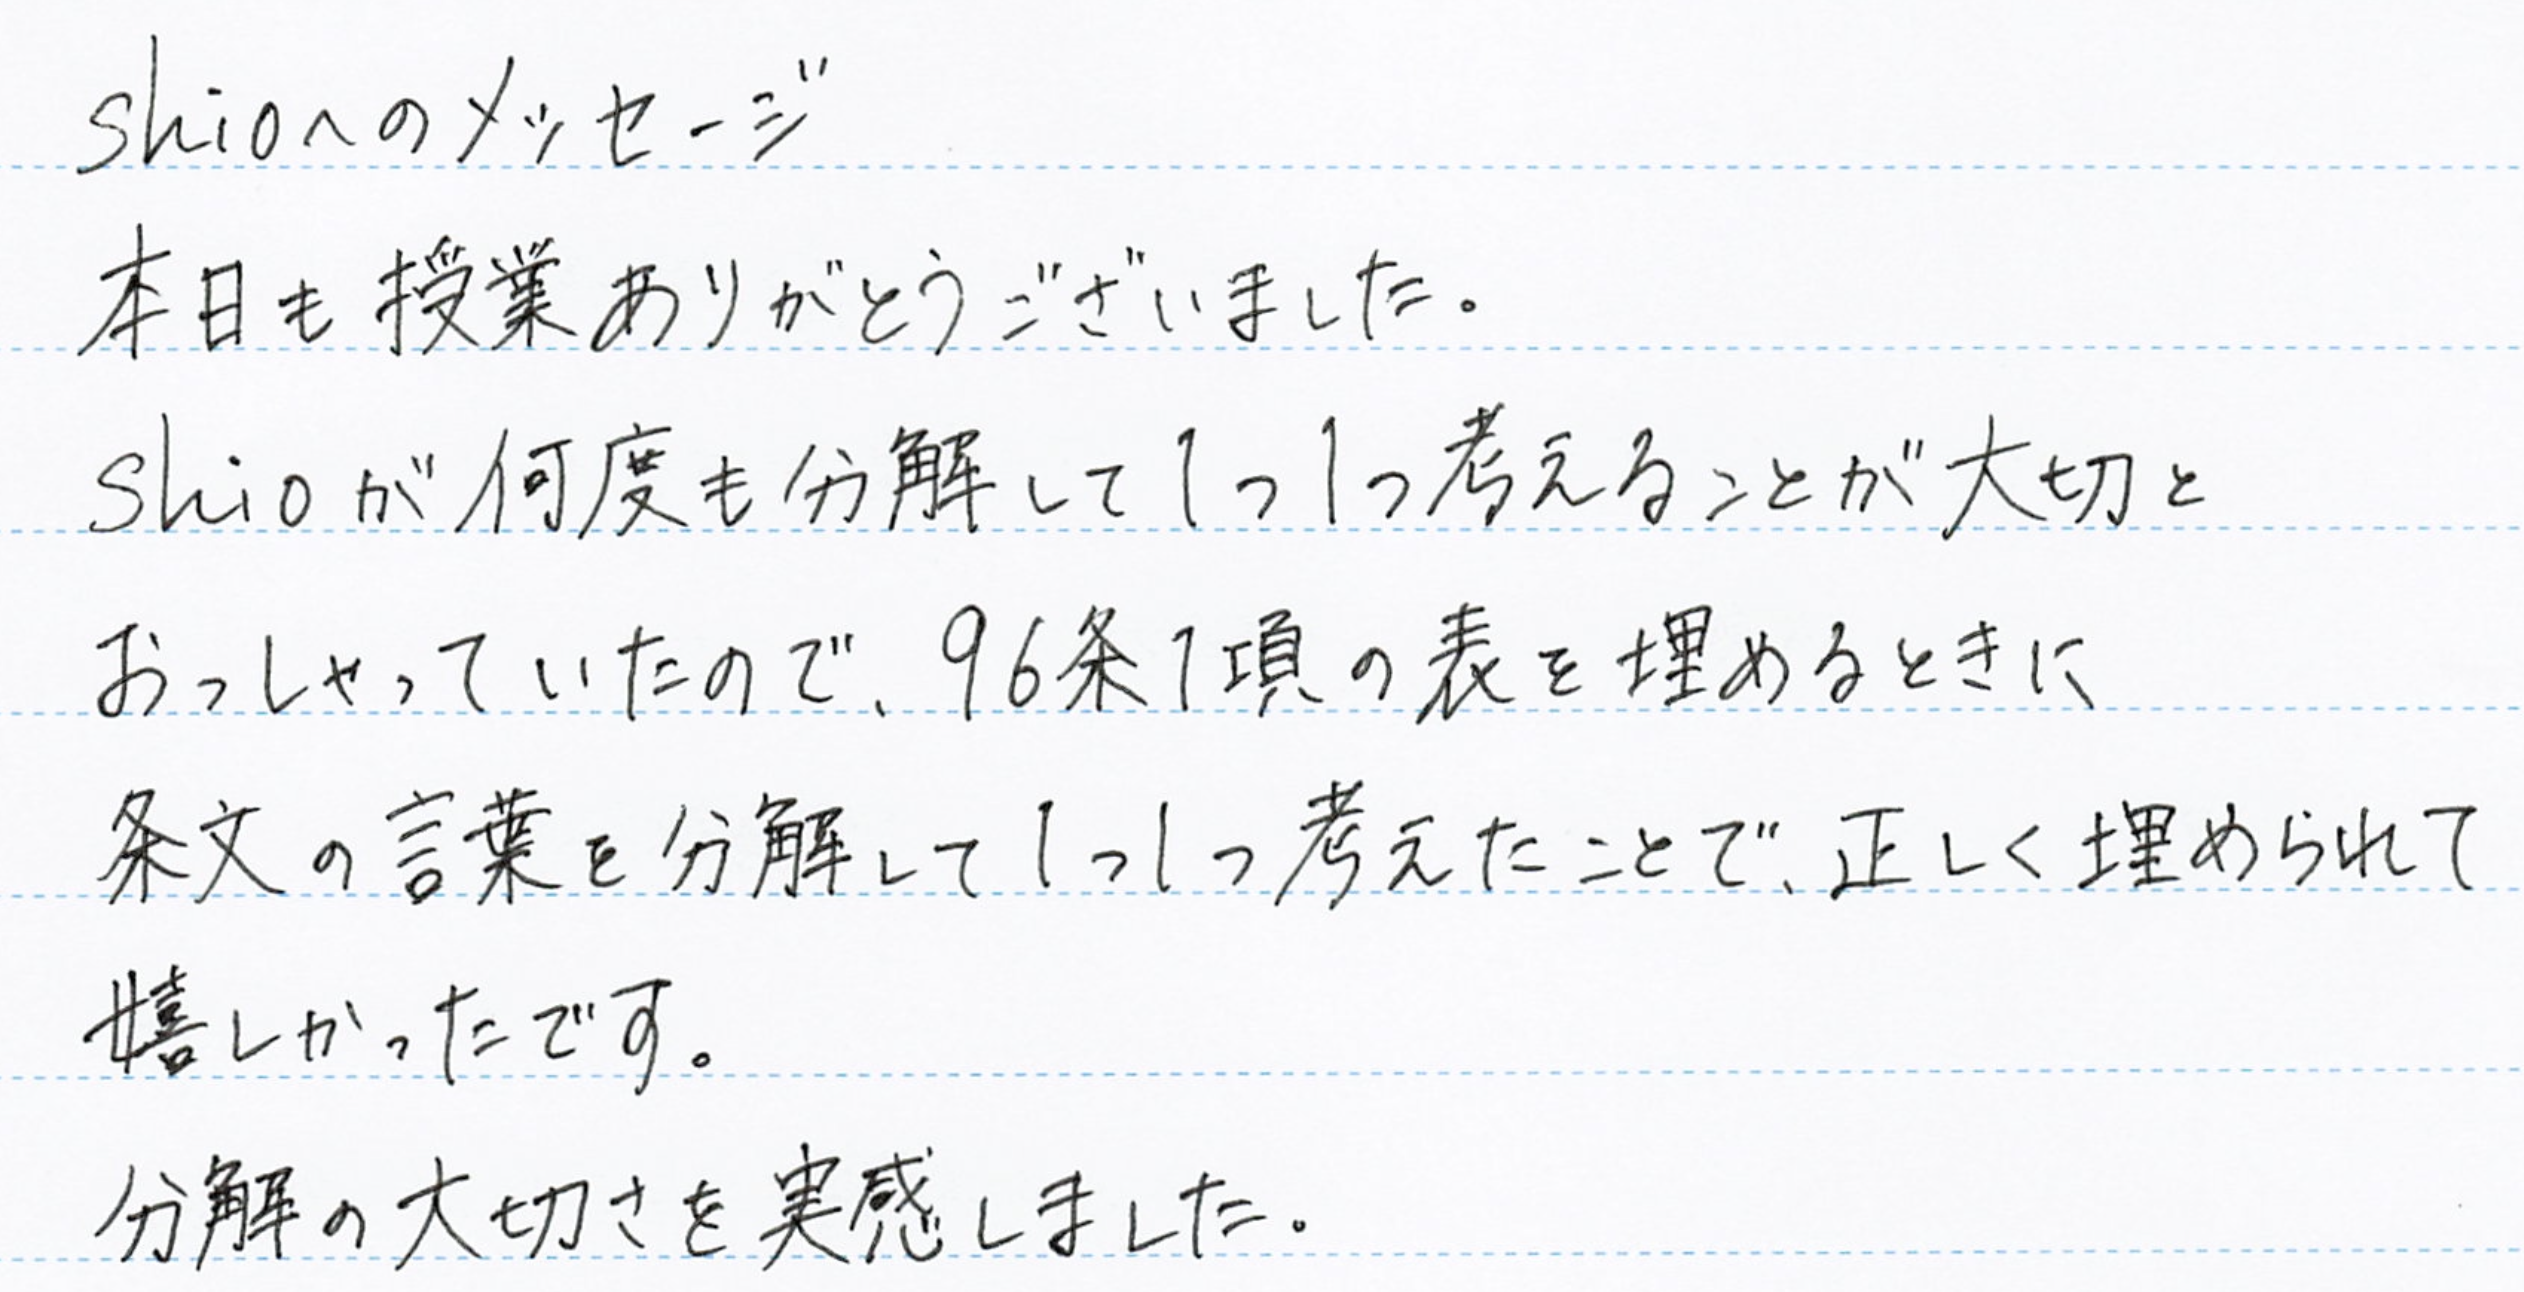 shioへのメッセージ
本日も授業ありがとうございました。
shioが何度も分解して1つ1つ考えることが大切と
おっしゃっていたので、96条1項の表を埋めるときに
条文の言葉を分解して1つ1つ考えたことで、正しく埋められて
嬉しかったです。
分解の大切さを実感しました。